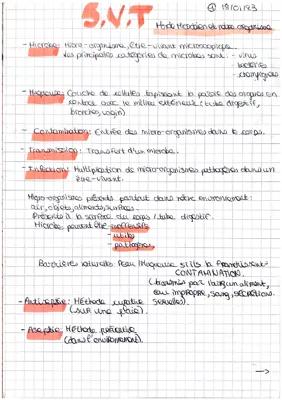 S.V.T
- Microbe: Micro-organisme, être-vivant microscopique.
Les principales catégories de microbes sont: - virus
bactéries
- champignons
- Muqueuse: Couche de cellules tapissant la paroi des organes en
contact avec le milieu extérieur (tube digestif,
bronches, vagin)
- Contamination: Entrée des micro-organismes dans le corps.
- Transmission: Transfert d'un microbe.
- Infection: Multiplication de micro-organismes pathogènes dans un
être-vivant.
Micro-organismes présents partout dans notre environnement:
air, objets, aliments, surfaces.
Présents à la surface du corps / tube digestif.
Microbes peuvent être - inoffensifs
- utiles
- pathogènes
Barrières naturelles: Peau / Muqueuse si ils la franchissent:
CONTAMINATION.
(transmis par l'air, aliment,
eau impropre, sang, sécrétions
sexuelles).
- Antiseptie: Méthode curative
(sur une plaie).
- Aseptie: Méthode préventive
(dans l'environnement).